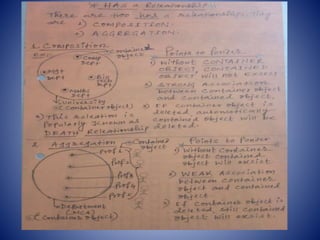 * HAS-A Releationship
There are two has a releationships. They
are 1) COMPOSITION.
2) AGGREGATION.
1. Composition
Contained
object
Comp
DEPT
DEPT
DEPT
Maths
DEPT
University
(Container object)
3) This releation is
popularly known as
DEATH Releationship
Points to Ponder
1) Without CONTAINER
OBJECT, CONTAINED
OBJECT will not exsist
2) STRONG Association
Between container object
and contained object
3) If container object is
deleted automatically
contained object will be
deleted.
2. Aggregation
Contained
object
Prof 1
Prof 2
Prof 3
Prof 4
Prof 5
Department
(MCA)
(Container object)
Points to Ponder
1) Without container
object contained
object will exsist
2) WEAK Association
between container
object and contained
object
3) If container object is
deleted still contained
object will exsist.